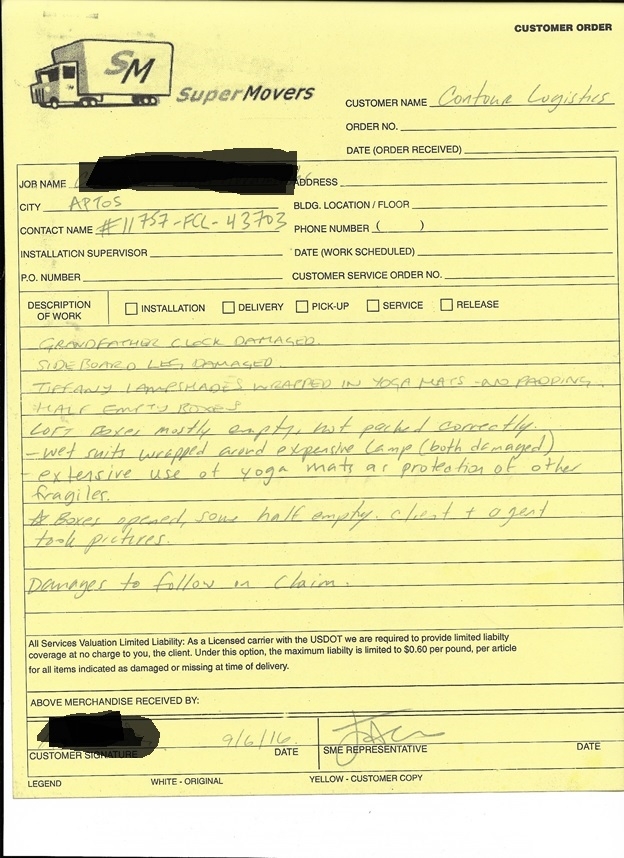 CUSTOMER ORDER
SM
SuperMovers
CUSTOMER NAME Contour Logistics
ORDER NO.
DATE (ORDER RECEIVED)
JOB NAME
ADDRESS
CITY APTOS
BLDG. LOCATION / FLOOR
CONTACT NAME #11757-FCL-43703
PHONE NUMBER ( )
INSTALLATION SUPERVISOR
DATE (WORK SCHEDULED)
P.O. NUMBER
CUSTOMER SERVICE ORDER NO.
DESCRIPTION
OF WORK
INSTALLATION DELIVERY PICK-UP SERVICE RELEASE
GRANDFATHER CLOCK DAMAGED.
SIDEBOARD LEG DAMAGED.
TIFFANY LAMPSHADES WRAPPED IN YOGA MATS - NO PADDING.
HALF EMPTY BOXES
Boxes mostly empty, not packed correctly.
- wet suits wrapped around expensive lamp (both damaged)
- extensive use of yoga mats as protection of other
fragiles.
Boxes opened, some half empty. client + agent
took pictures.
Damages to follow on Claim.
All Services Valuation Limited Liability: As a Licensed carrier with the USDOT we are required to provide limited liabilty
coverage at no charge to you, the client. Under this option, the maximum liabilty is limited to $0.60 per pound, per article
for all items indicated as damaged or missing at time of delivery.
ABOVE MERCHANDISE RECEIVED BY:
9/6/16
CUSTOMER SIGNATURE DATE
SME REPRESENTATIVE DATE
LEGEND WHITE - ORIGINAL YELLOW - CUSTOMER COPY